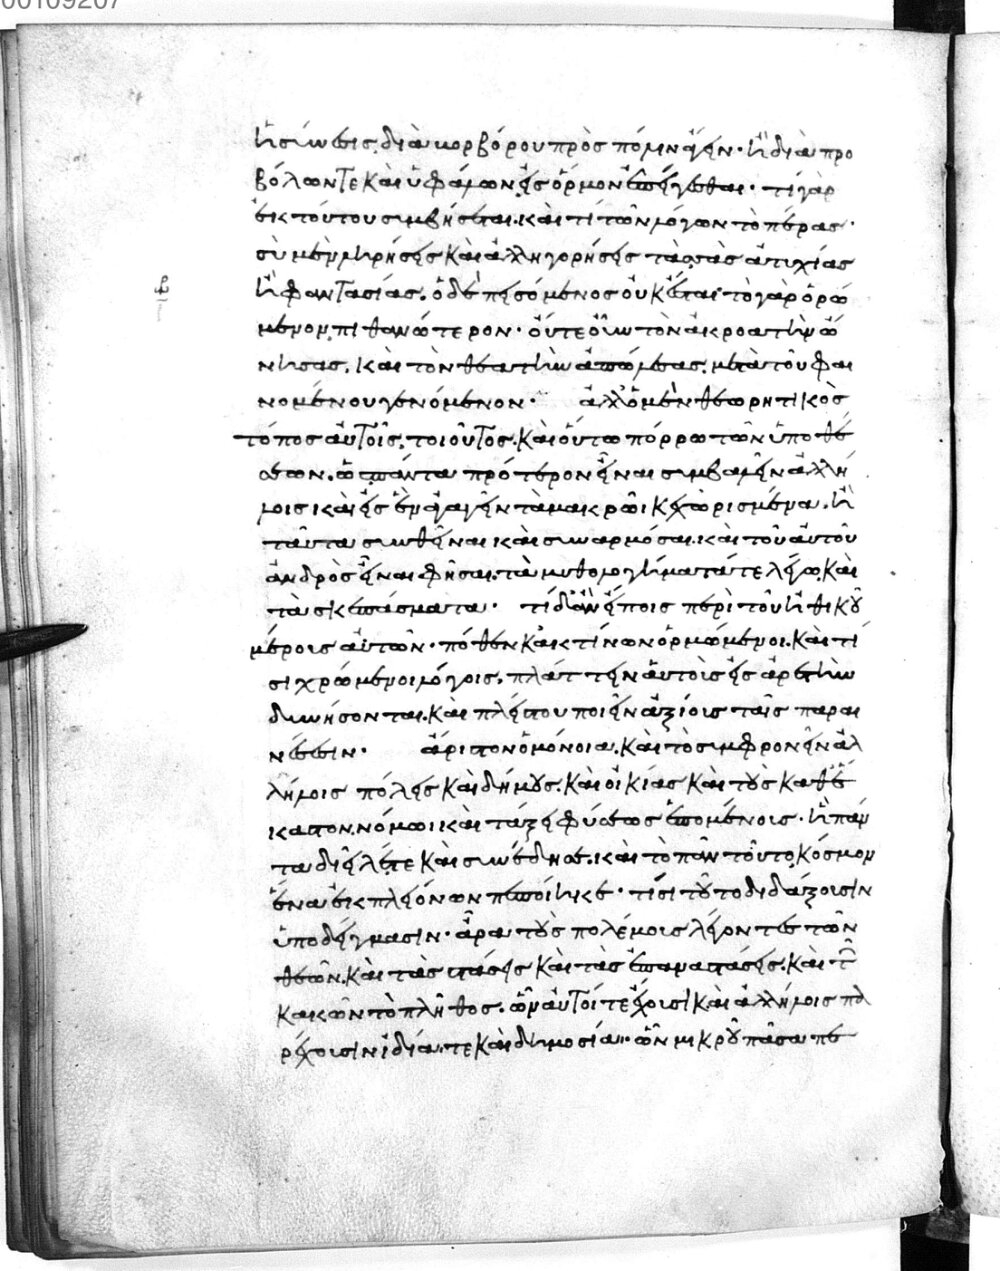 ἢ σύνεσις, διὰ βορβόρου πρὸς πόλιν ἄγειν· ἢ διὰ προ
βόλων τε καὶ ὑφάλων εἰς ὅρμον ἐπείγεσθαι· τί γὰρ
ἐκ τούτου συμβήσεται. καὶ τί τῶν λόγων τὸ πέρας·
σὺ μὲν ληρήσεις καὶ ἀλληγορήσεις τὰς σὰς ἀτυχίας
ἢ φαντασίας. ὁ δὲ πεισόμενος οὐκ ἔσται· τὸ γὰρ ὁρώ
μενον πιθανώτερον· οὔτε οὖν τὸν ἀκροατὴν ὤ
νησας. καὶ τὸν θεατὴν ἀπώλεσας. μετὰ τοῦ φαι
νομένου γενόμενον· ἀλλ' ὁ μὲν θεωρητικὸς
τόπος αὐτοῖς, τοιοῦτος. καὶ οὕτω πόρρω τῶν ὑποθέ
σεων. ὡς πάντα πρότερον εἶναι συμβαλεῖν ἀλλή
λοις καὶ εἰς ἓν ἀγαγεῖν τὰ μακρῶι κεχωρισμένα. ἢ
ταῦτα συνθεῖναι καὶ συναρμόσαι. καὶ τοῦ αὐτοῦ
ἀνδρὸς εἶναι φῆσαι. τὰ μυθολογήματά τε λέγω, καὶ
τὰ σκεπάσματα· τί δ' ἂν εἴποις περὶ τοῦ ἠθικοῦ
μέρους αὐτῶν· πόθεν καὶ ἐκ τίνων ὁρμώμενοι. καὶ τί
σι χρώμενοι λόγοις. πλάττειν αὐτοὺς εἰς ἀρετὴν
δυνήσονται. καὶ πλείστου ποιεῖν ἀξίους ταῖς παραι
νέσεσιν· ἄριστον ὁμόνοια. καὶ τὸ συμφρονεῖν ἀλ
λήλοις πόλεις καὶ δήμους. καὶ οἰκίας καὶ τοὺς καθ' ἕ
καστον. νόμωι καὶ τάξει φύσεως ἑπομένους· ἣ πάν
τα διεῖλέ τε καὶ συνέδησε. καὶ τὸ πᾶν τοῦτο, κόσμον
ἕνα ἐκ πλειόνων πεποίηκε· τίσι τοῦτο διδάξουσιν
ὑποδείγμασιν· ἆρα τοὺς πολέμους λέγοντες τῶν
θεῶν. καὶ τὰς στάσεις καὶ τὰς ἐπαναστάσεις. καὶ τῶν
κακῶν τὸ πλῆθος. ὧν αὐτοί τε ἔχουσι καὶ ἀλλήλοις πα
ρέχουσιν ἰδίᾳ τε καὶ δημοσίᾳ· ὧν μικροῦ πᾶσα πε